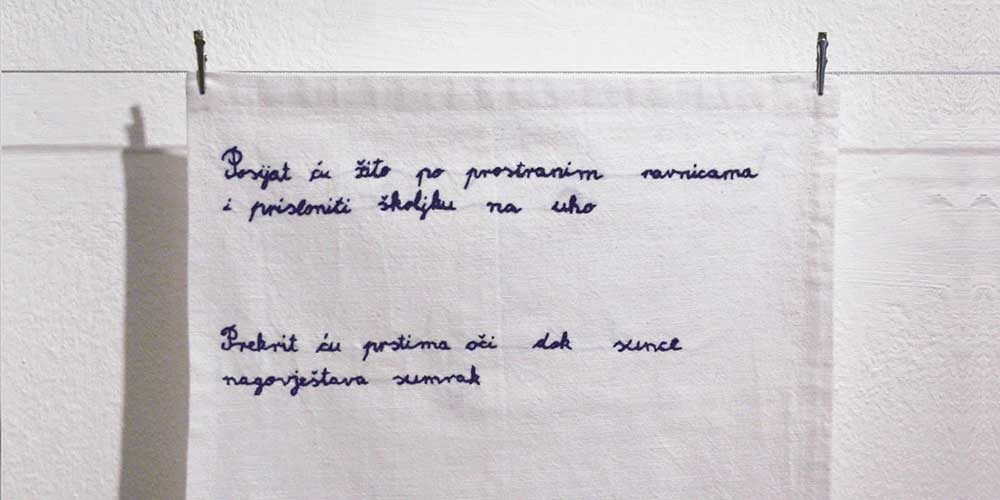 Posijat ću žito po prostranim ravnicama
i prisloniti školjku na uho
Prekrit ću prstima oči dok sunce
nagovještava sumrak